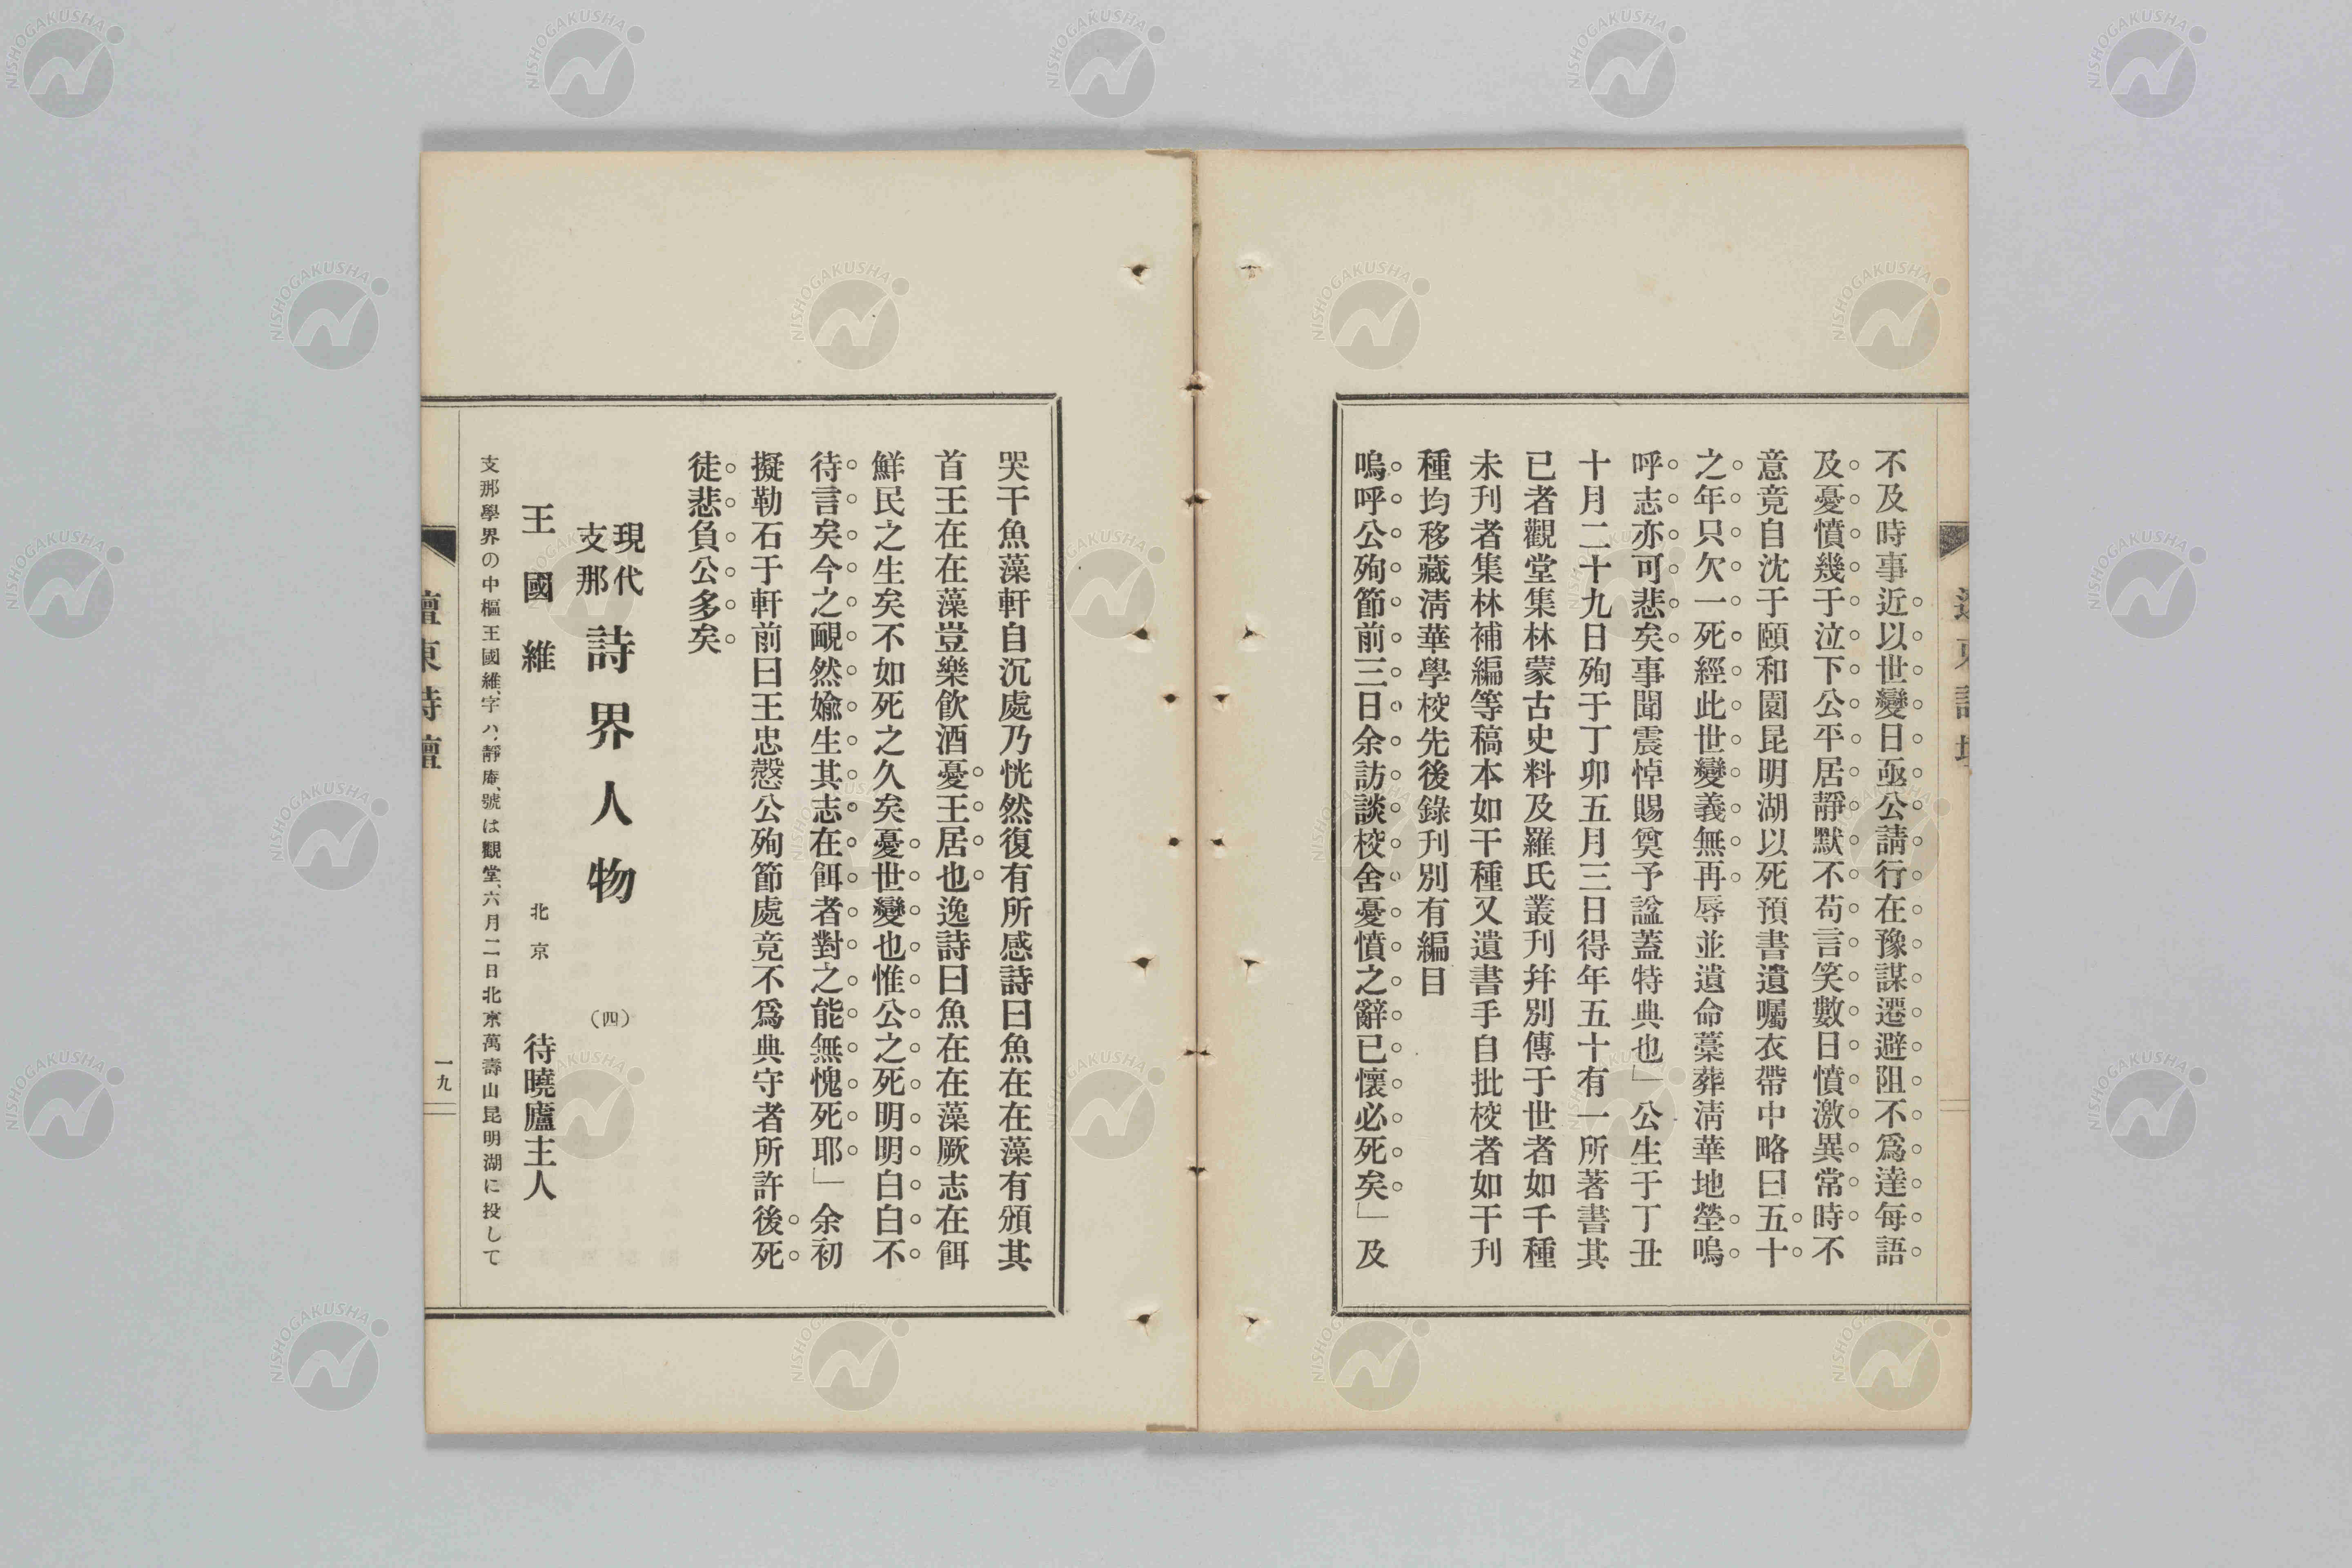 不及時事近以世變日亟公請行在豫謀遷避阻不爲達每語
及憂憤幾于泣下公平居靜默不苟言笑數日憤激異常時不
意竟自沈于頤和園昆明湖以死預書遺囑衣帶中略曰五十
之年只欠一死經此世變義無再辱並遺命藁葬淸華地塋嗚
呼志亦可悲矣事聞震悼賜奠予諡蓋特典也」公生于丁丑
十月二十九日殉于丁卯五月三日得年五十有一所著書其
已者觀堂集林蒙古史料及羅氏叢刊幷別傳于世者如千種
未刊者集林補編等稿本如干種又遺書手自批校者如干刊
種均移藏淸華學校先後錄刊別有編目
嗚呼公殉節前三日余訪談校舍憂憤之辭已懷必死矣」及
哭于魚藻軒自沉處乃恍然復有所感詩曰魚在在藻有頒其
首王在在藻豈樂飮酒憂王居也逸詩曰魚在在藻厥志在餌
鮮民之生矣不如死之久矣憂世變也惟公之死明明白白不
待言矣今之靦然婾生其志在餌者對之能無愧死耶」余初
擬勒石于軒前曰王忠慤公殉節處竟不爲典守者所許後死
徒悲負公多矣
現代支那詩界人物（四）
王國維 北京 待曉廬主人
支那學界の中樞王國維、字ハ、靜庵、號は觀堂、六月二日北京萬壽山昆明湖に投して
一九
NISHOGAKUSHA